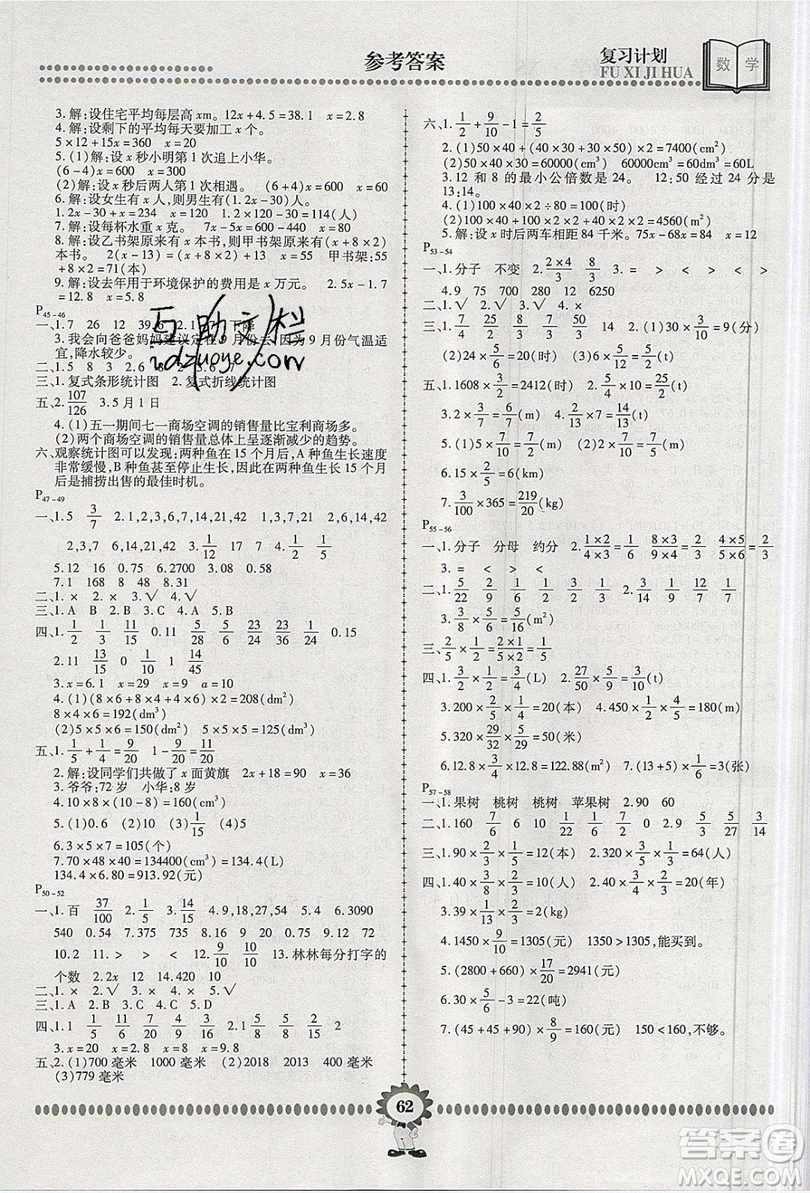 参考答案
复习计划
FU XI JI HUA
数学
3.解:设住宅平均每层高 xm。12x+4.5=38.1 x=2.8
4.解:设剩下的平均每天要加工 x 个。
5×12+15x=360 x=20
5.(1)解:设 x 秒小明第 1 次追上小华。
(6-4)x=360 x=180
(2)解:设 x 秒后两人第 1 次相遇。 (6+4)x=360 x=36
6.解:设女生有 x 人,则男生有(1.2x-30)人。
1.2x-30+x=234 x=120 1.2×120-30=114(人)
7.解:设每杯水重 x 克。 7x-5x=600-100 x=250
8.解:设乙书架原来有 x 本书,则甲书架原来有(x+8×2)
本书。 x+x+8×2=126 x=55 甲书架:x+8×2=
55+8×2=71(本)
9.解:设去年用于环境保护的费用是 x 万元。 2.5x-1.7
=12.8 x=5.8
P45-46
一、1.7 26 12 39.6
3.我会向爸爸妈妈建议定在 9 月份去,因为 9 月份气温适
宜,降水较少。
二、1.5 8 13 2.√ √ √
三、1.复式条形统计图 2.复式折线统计图
五、2.107/126 3.5 月 1 日
4.(1)五一期间七一商场空调的销售量比宝利商场多。
(2)两个商场空调的销售量总体上呈逐渐减少的趋势。
六、观察统计图可以发现:两种鱼在 15 个月后,A 种鱼生长速度
非常缓慢,B 种鱼甚至停止生长,因此两种鱼生长 15 个月
后是捕捞出售的最佳时机。
P47-49
一、1.5 3/7 2.1,2,3,6,7,14,21,42 1,3,7,21 2,6,14,42
2,3,7 6,14,21,42 3.1/12 17 7 4.1/3
5.12 16 0.75 6.2700 0.58
7.1 168 8 48
二、1.× 2.× 3.√ 4.×
三、1.A B 2.A 3.C 4.A 5.B
四、1.1/2 1/3 11/15 0.11 5/28 5/28 23/36 1/24 0.15
2.11 13/15 0 1 49/10
3.x=6.1 x=29 x=9 a=10
4.(1)(8×6+8×4+4×6)×2=208(dm²)
8×4×6=192(dm³)
(2)5×5×6=150(dm²) 5×5×5=125(dm³)
五、1.1/5+1/4=9/20 1-9/20=11/20
2.解:设同学们共做了 x 面黄旗 2x+18=90 x=36
3.爷爷:72 岁 小华:8 岁
4.10×8×(10-8)=160(cm³)
5.(1)0.6 (2)0.2 (3)1/15 (4)5
6.3×5×7=105(个)
7.70×48×40=134400(cm³)=134.4(L)
134.4×6.80=913.92(元)
P50-52
一、1.百 37/100 2.1/5 3.14/15 4.9,18,27 5.4 6.3090
540 0.54 7.0.735 8.> < < < > = 9.48
10.2 11.> > < < 12.9/10 9/10 13.林林每分打字的
个数 2.2x 12 14.420 10
二、1.√ 2.√ 3.× 4.× 5.√
三、1.A 2.B 3.C 4.C 5.B
四、1.1 1/5 5/11 11/6 7/9 6/7 2.1/20 5/8 1/12 8/15 2
3.x=20 x=4.8 x=2 x=9.8
五、2.(1)700 毫米 1000 毫米 (2)2018 2013 400 毫米
(3)779 毫米
六、1.1/2+9/10-1=2/5
2.(1)50×40+(50+40)×30×2=7400(cm²)
(2)50×40×30=60000(cm³) 60000cm³=60dm³=60L
3.12 和 8 的最小公倍数是 24。 12:50 经过 24 分是
13:14。
4.(1)100×4×2÷80=100(时)
(2)100×40+100×2×2+40×2×2=4560(m²)
5.解:设 x 时后两车相距 84 千米。75x-68x=84 x=12
P53-54
一、1.分子 不变 2.2×4/3 8/3 3.= > < > < >
4.9 75 700 250 18 10
二、1.√ 2.√ 3.√
三、1.7/4 25/8 50/7 3/2 4/15×30=8 9/10×10=9(分)
(2)24×1/2=12(时) (3)7×2/7=2(天)
五、1.1608×3/2=2412(时) 2.25×3/5=15(米)
3.2/15×10=4/3(米) 4.2/15×7=14/15(米)
5.(1)15×2/5=6(时) (2)15×1/3=5(时)
6.15×2/25=6/5(m) 15-6/5=69/5(m)
7.3/100×365=219/20(kg)
P55-56
一、1.分子 分母 约分 2.1×2/4×3=1/6 3/8 9/20 4×5/5×6=2/3
3.= < > = < >
二、1.1/12 1/3 3/5 2/7 1/14 3/4 2/3 3/10 5/18 1/2
三、2/5×1/2=2×1/5×2=1/5
四、1.3/2×1/2=3/4(L) 2.27/50×5/9=3/10(t)
3.200×2/5×1/4=20(本) 4.450×1/2×4/5=180(m)
5.320×29/32=290(m)
6.12.8×3/4×12.8=122.88(m²) 7.9×1/3=3(张)
P57-58
一、1.果树 桃树 桃树 苹果树 2.90 60
二、1.160 7/6 6 10 1/22 1/6 2/7 0 2.9 5/3 5/7 29/30
三、1.90×2/15=12(本) 2.320×3/4×1/2=120(本)
四、1.40×3/8×2/3=10(只) 2.40×5/2×1/5=20(年)
3.39×2/13×1/2=3(个)
4.1450×9/10=1305(元) 1350>1305,能买到。
5.(2800+660)×17/20=2941(元)
6.30×5/6-3=22(吨)
7.(45+45+90)×8/9=160(元) 150<160,不够。
62
互助文档
答案圈
MXQE.COM